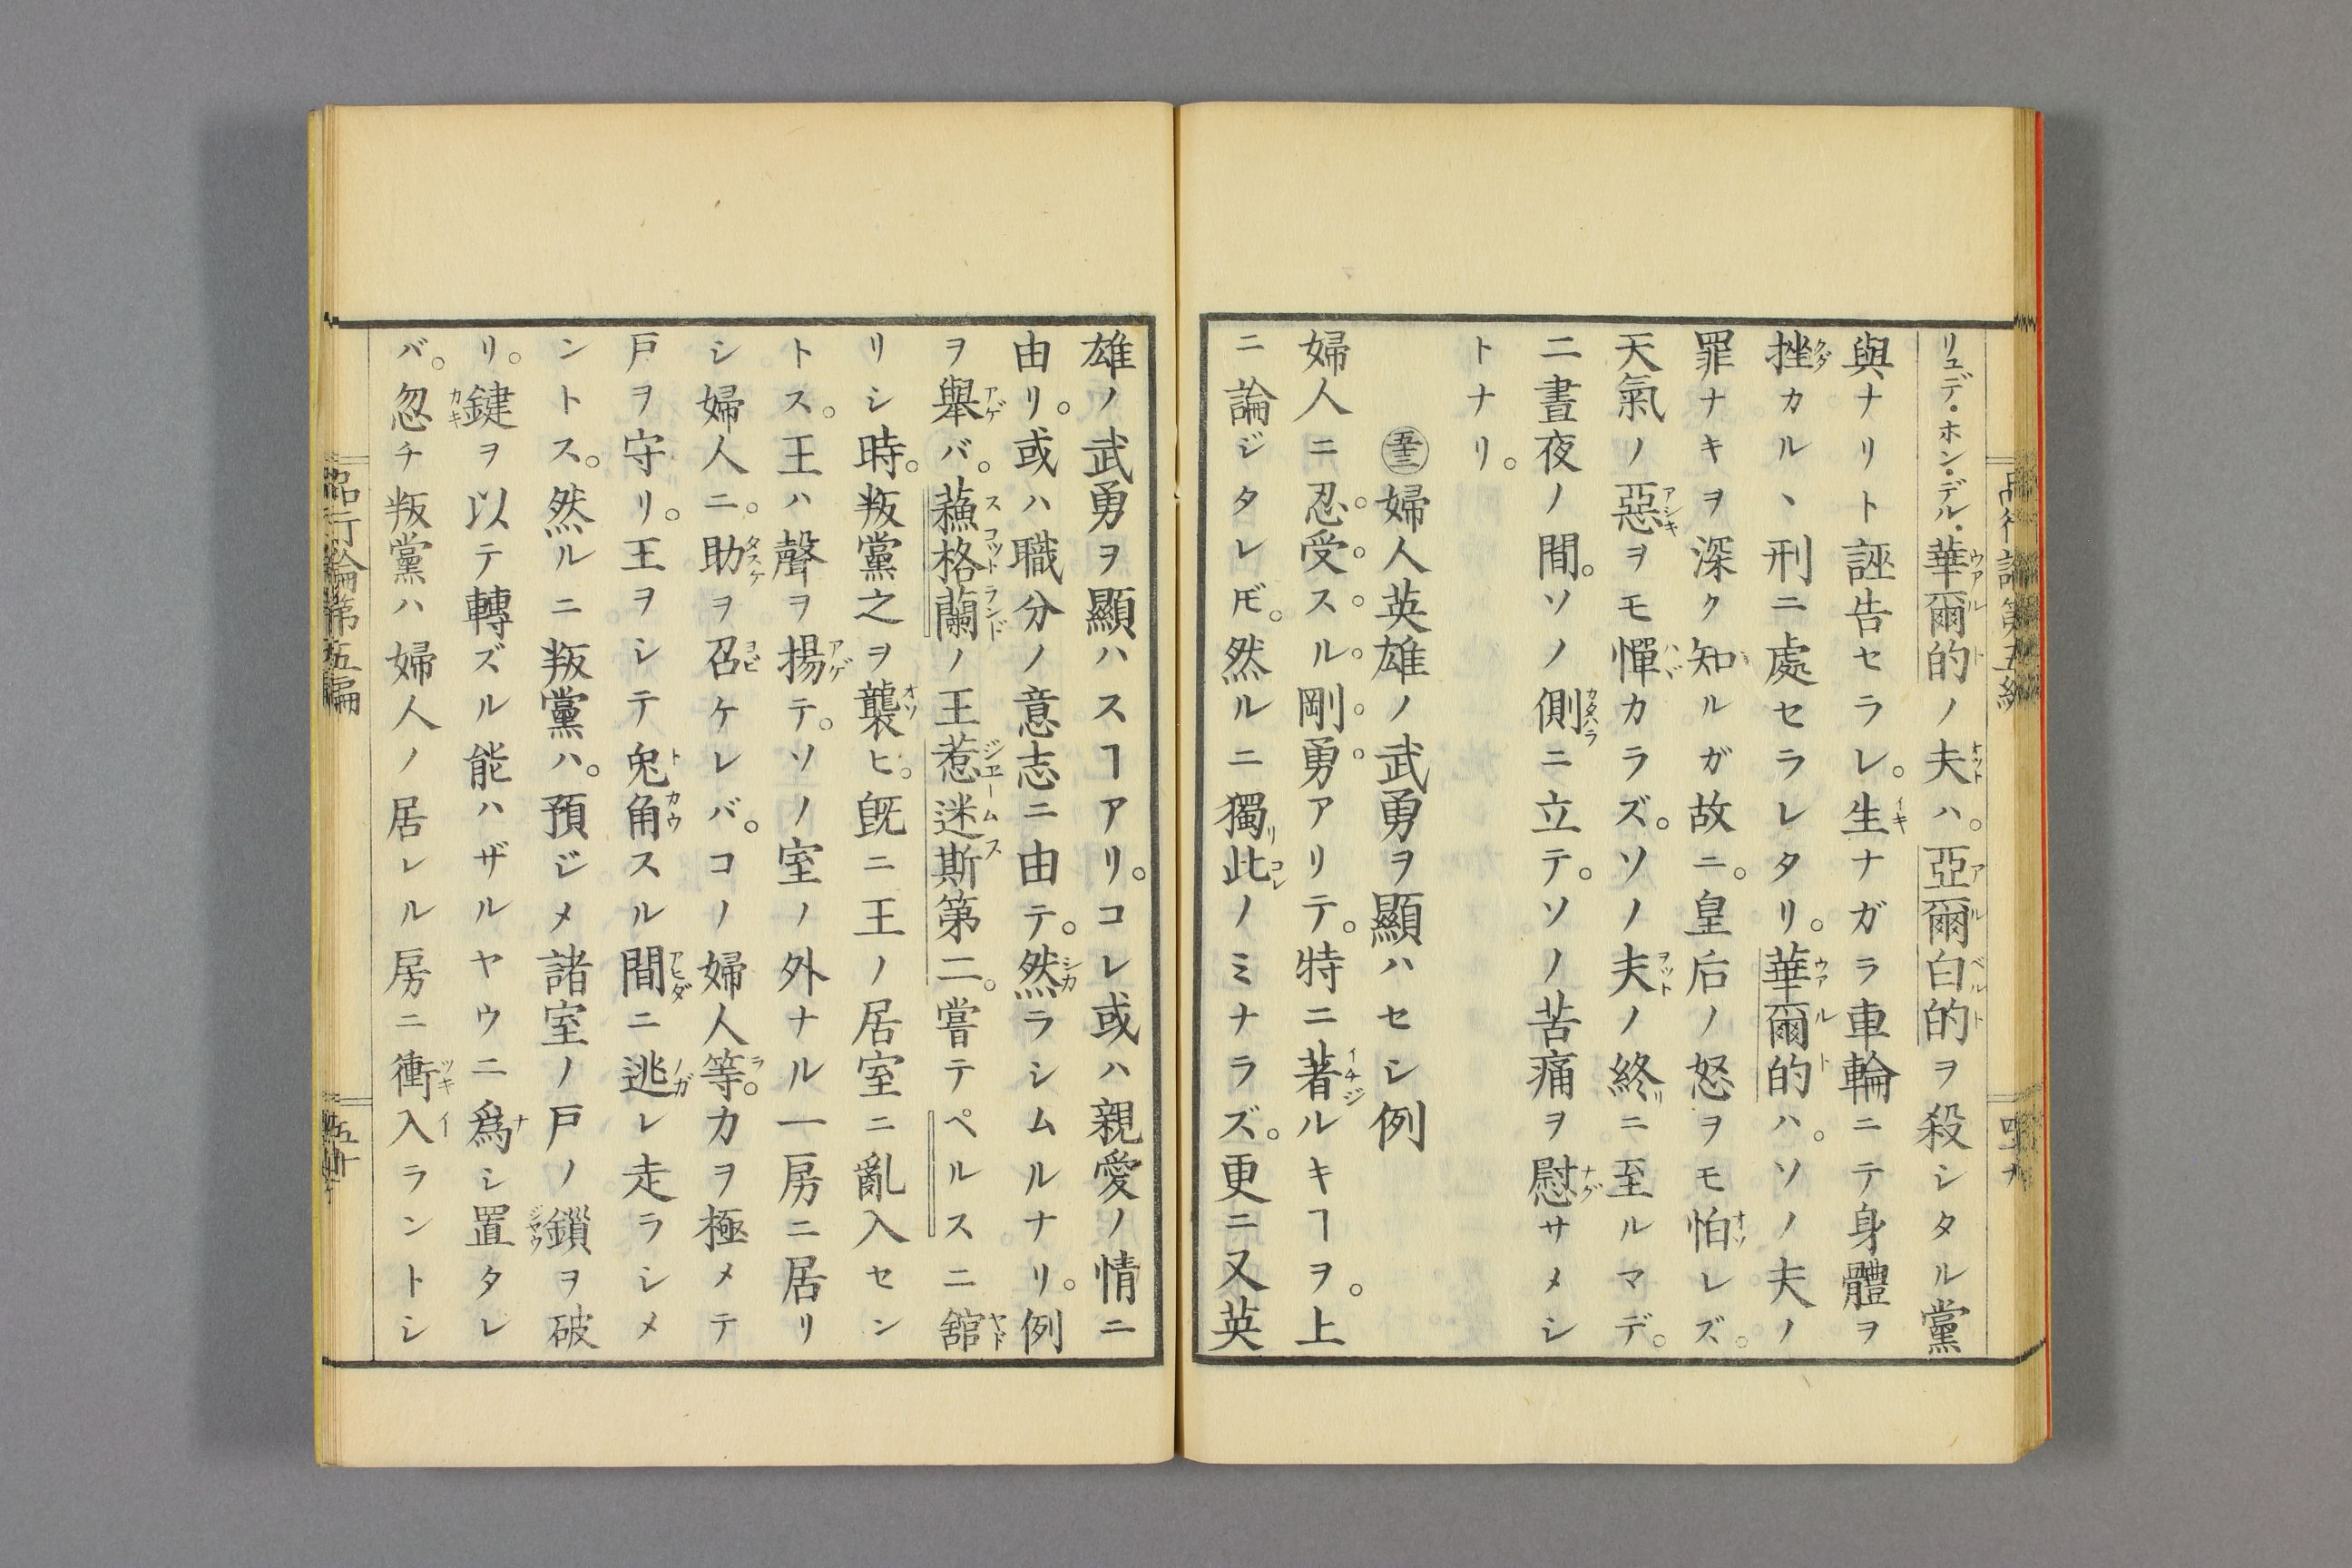 リュデ・ホン・デル・華爾的ノ夫ハ。亞爾白的ヲ殺シタル黨
與ナリト誣告セラレ。生ナガラ車輪ニテ身體ヲ
挫カル丶刑ニ處セラレタリ。華爾的ハ。ソノ夫ノ
罪ナキヲ深ク知ルガ故ニ。皇后ノ怒ヲモ怕レズ。
天氣ノ惡ヲモ憚カラズ。ソノ夫ノ終ニ至ルマデ。
二晝夜ノ間。ソノ側ニ立テ。ソノ苦痛ヲ慰サメシ
トナリ。
婦人英雄ノ武勇ヲ顯ハセシ例
婦人ニ忍受スル剛勇アリテ。特ニ著ルキヿヲ。上
ニ論ジタレ𪜈。然ルニ獨此ノミナラズ。更ニ又英
雄ノ武勇ヲ顯ハスヿアリ。コレ或ハ親愛ノ情ニ
由リ。或ハ職分ノ意志ニ由テ。然ラシムルナリ。例
ヲ舉バ。蘓格蘭ノ王惹迷斯第二。嘗テペルスニ舘
リシ時。叛黨之ヲ襲ヒ。既ニ王ノ居室ニ亂入セン
トス。王ハ聲ヲ揚テ。ソノ室ノ外ナル一房ニ居リ
シ婦人ニ。助ヲ召ケレバ。コノ婦人等。力ヲ極メテ
戸ヲ守リ。王ヲシテ兔角スル間ニ逃レ走ラシメ
ントス。然ルニ叛黨ハ。預ジメ諸室ノ戸ノ鎖ヲ破
リ。鍵ヲ以テ轉ズル能ハザルヤウニ爲シ置タレ
バ。忽チ叛黨ハ婦人ノ居レル房ニ衝入ラントシ
品行論第五編
五十